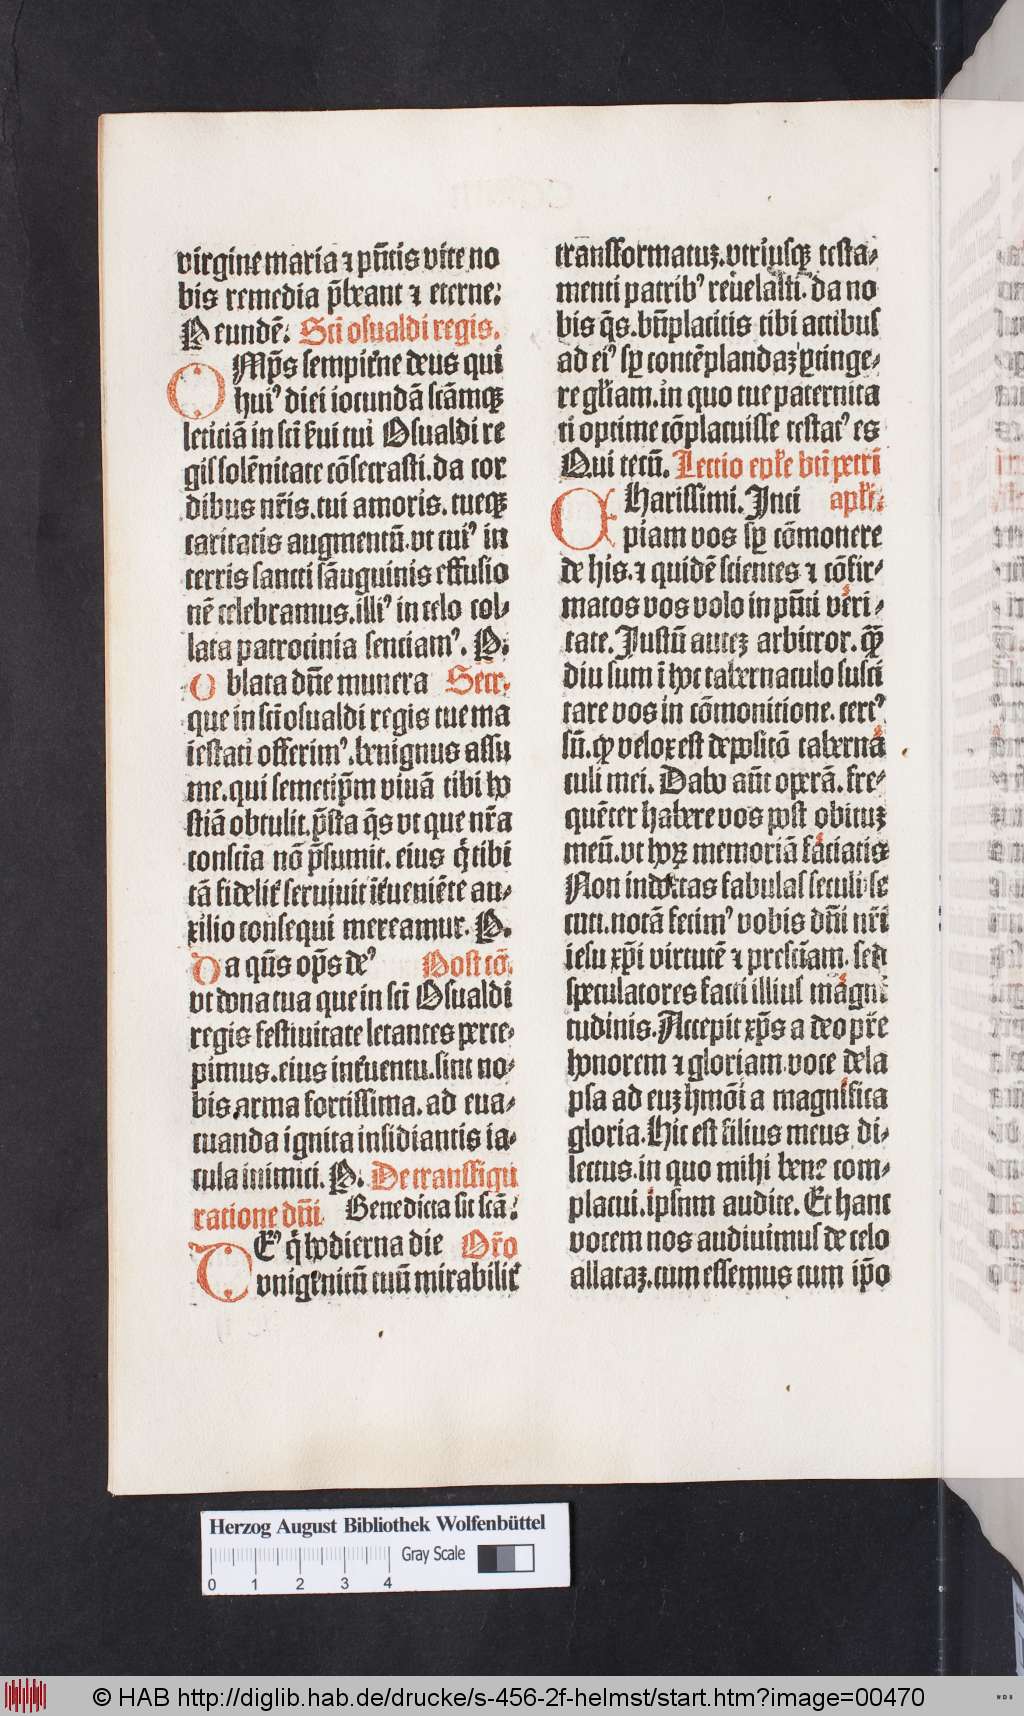 virgine maria ⁊ pn̄tis vite no
bis remedia p̄beant ⁊ eterne:
P eundē: Sc̄i osualdi regis.
OMp̄s sempit̄ne deus qui
huiꝰ diei iocundā sc̄amqꝫ
leticiā in sc̄i s̄ui tui Osualdi re
gis solēnitate cōsecrasti. da cor
dibus nr̄is. tui amoris. tueqꝫ
caritatis augmentū. vt cuiꝰ in
terris sancti sāuguinis effusio
nē celebramus. illiꝰ in celo col⸗
lata patrocinia sentiamꝰ. P:
O blata dn̄e munera Secr̄.
que in sc̄i osualdi regis tue ma
iestati offerimꝰ. benignus assu
me. qui semetip̄m viuā tibi ho
stiā obtulit. p̄sta q̄s vt que nr̄a
consc̄ia nō p̄sumit. eius q̄ tibi
tā fidelit̄ seruiuit īt̄ueniēte au⸗
xilio consequi mereamur. P.
D a qn̄s op̄s deꝰ Post cō.
vt dona tua que in sc̄i Osualdi
regis festiuitate letantes perce⸗
pimus. eius int̄uentu. sint no⸗
bis arma fortissima. ad eua⸗
cuanda ignita insidiantis ia⸗
cula inimici. P: De transfigu
ratione dn̄i Benedicta sit scā:
DEꝰ q̄ hodierna die Or̄o
vnigenitū tuū mirabilit̄
transformatuꝫ. vtriusqꝫ testa⸗
menti patribꝰ reuelasti. da no
bis q̄s. bn̄placitis tibi actibus
ad eiꝰ sꝑ contēplandaꝫ ꝑtinge⸗
re gl̄iam. in quo tue paternita
ti optime cōplacuisse testatꝰ es
Qui tecū. Lectio epl̄e bt̄i petri
CHarissimi. Inci apl̄i:
piam vos sꝑ cōmonere
de his. ⁊ quidē scientes ⁊ cōfir⸗
matos vos volo in pn̄ti veri⸗
tate. Justū auteꝫ arbitror. qꝫ̄
diu sum ī hoc tabernaculo susci
tare vos in cōmonitione. certꝰ
sū. ꝙ velox est depositō taberna
culi mei. Dabo aūt operā. fre⸗
quēter habere vos post obituꝫ
meū. vt hoꝝ memoriā faciatis
Non indoctas fabulas seculi se
cuti. notā fecimꝰ vobis dn̄i nr̄i
iesu xp̄i virtutē ⁊ presc̄iam. sed
speculatores facti illius magni
tudinis. Accepit xp̄s a deo pr̄e
honorem ⁊ gloriam. voce dela
psa ad euꝫ hmōi a magnifica
gloria. Hic est filius meus di⸗
lectus. in quo mihi bene com⸗
placui. ipsum audite. Et hanc
vocem nos audiuimus de celo
allataꝫ. cum essemus cum ip̄o
Herzog August Bibliothek Wolfenbüttel
Gray Scale
0 1 2 3 4
© HAB http://diglib.hab.de/drucke/s-456-2f-helmst/start.htm?image=00470